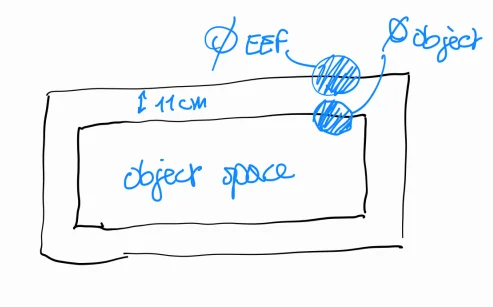 ∅ EEF
∅ object
↕ 11cm
object space